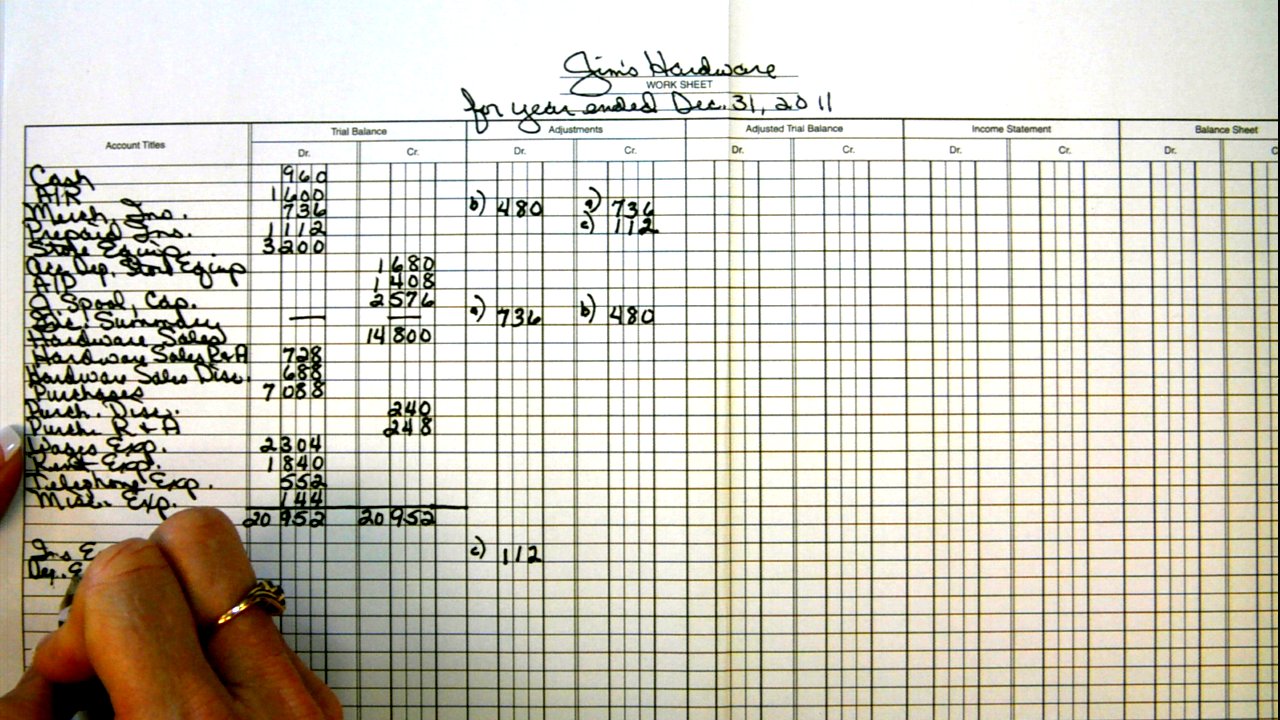 Jim's Hardware
WORK SHEET
for year ended Dec. 31, 2011
Account Titles Trial Balance Adjustments Adjusted Trial Balance Income Statement Balance Sheet
Dr. Cr. Dr. Cr. Dr. Cr. Dr. Cr. Dr.
Cash 960
A/R 1600
Merch. Ins. 736 b) 480 a) 736
Prepaid Ins. 1112 c) 112
Store Equip. 3200
Acc. Dep. Store Equip 1680
A/P 1408
J. Spool, Cap. 2576
Inc. Summary — — a) 736 b) 480
Hardware Sales 14800
Hardware Sales R&A 728
Hardware Sales Disc. 688
Purchases 7088
Purch. Disc. 240
Purch. R&A 248
Wages Exp. 2304
Rent Exp. 1840
Telephone Exp. 552
Misc. Exp. 144
20952 20952
Ins E c) 112
Dep.